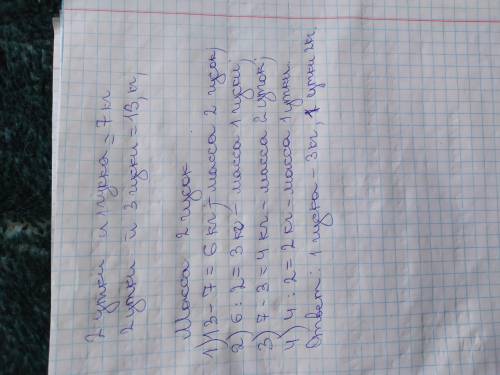 2 утки и 1 гуска = 7 кг
2 утки и 3 гуски = 13 кг,
Масса 2 гусок
1) 13 - 7 = 6 кг - масса 2 гусок,
2) 6 : 2 = 3 кг - масса 1 гуски,
3) 7 - 3 = 4 кг - масса 2 уток,
4) 4 : 2 = 2 кг - масса 1 утки.
Ответ: 1 гуска - 3 кг, 1 утки 2 кг.